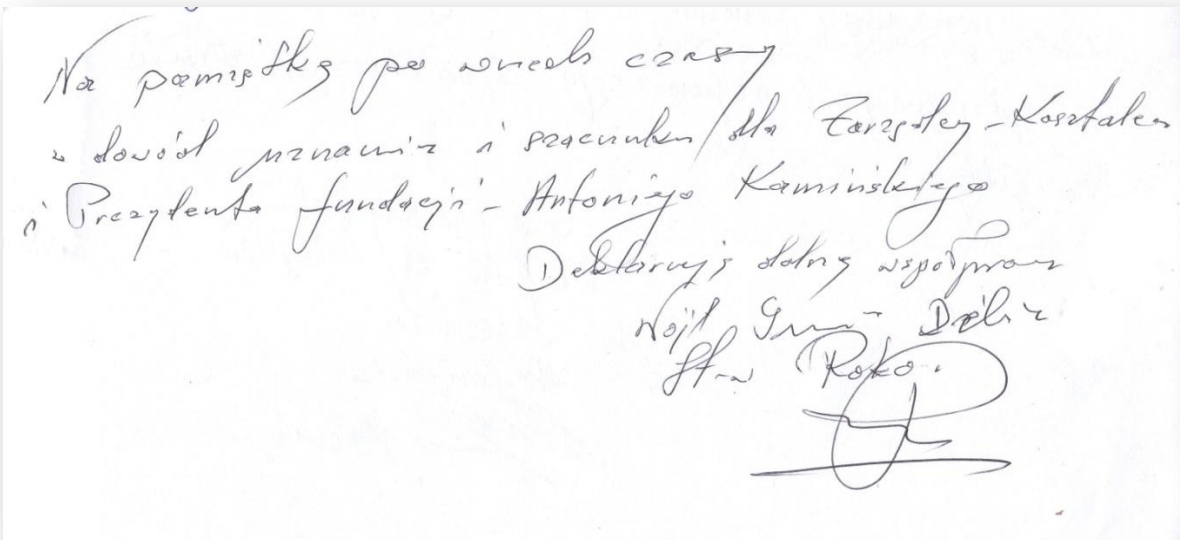 Na pamiątkę po wszech czasy
w dowód uznania i szacunku dla Zarządcy - Kasztelan
i Prezydenta fundacji - Antoniego Kamińskiego
Deklaruję dalszą współpracę
Wójt Gminy